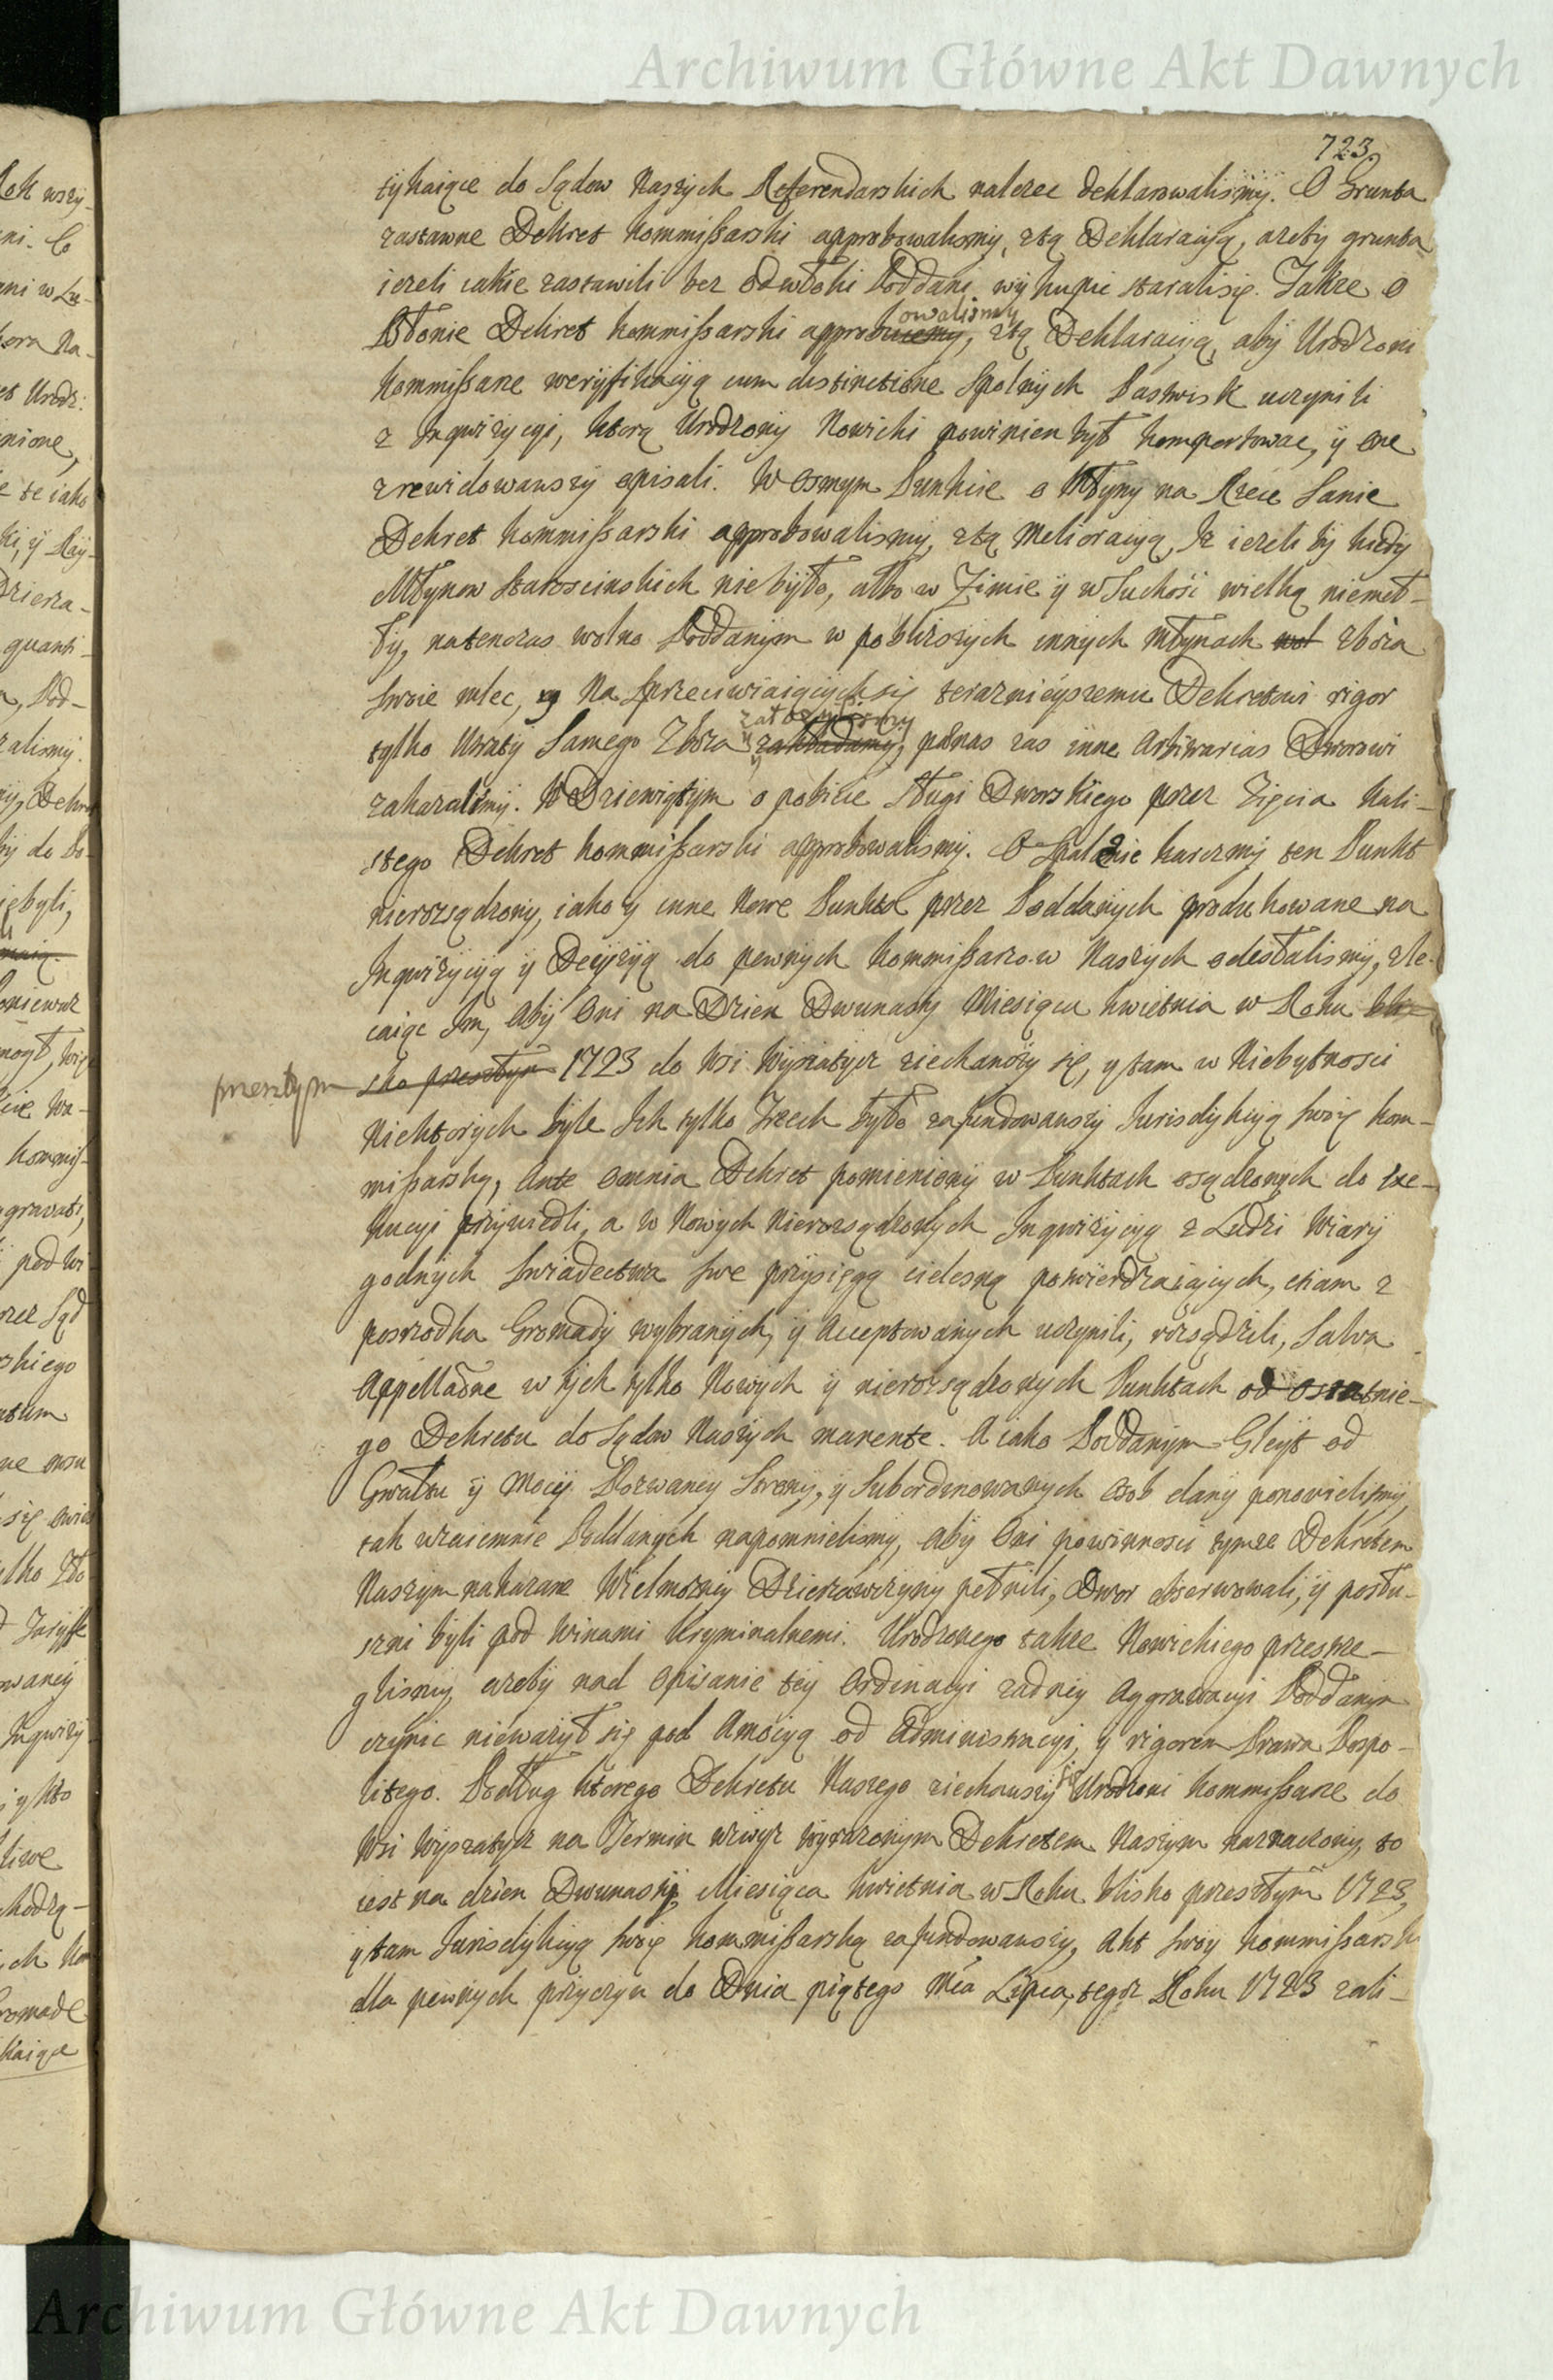 Archiwum Główne Akt Dawnych
723
tykaiące do Sądow Naszych Referendarskich nalezec deklarowalismy. O Grunta
zastawne Dekret kommißarski approbowalismy, ztą Deklaracyą, azeby grunta
iezeli iakie zastawili bez odwłoki Poddani wykupic staralisię. Także o
Błonie Dekret kommißarski approbuiemy, owalismy ztą Deklaracyą, aby Urodzoni
kommißarze weryfikacyą cum distinctione spolnych Pastwisk uczynili
z Inqwizycyi, ktorą Urodzony Nowicki powinien był komportowac, y one
zrewidowawszy opisali. W osmym Punkcie o Młyny na Rzece Sanie
Dekret kommißarski approbowalismy, ztą Melioracyą, Iz iezeli by kiedy
Młynow Starościnskich nie było, albo w Zimie y w Suchość wielką niemeł-
ły, natenczas wolno Poddanym w poblizszych innych młynach wol zboza
swoie mlec, y Na Sprzeciwiaiącychsię teraznieyszemu Dekretowi rigor
tylko Utraty Samego Zboza założylismy zakładamy, połnas zas inne Arbitrarias Dworowi
zakazalismy. W Dziewiątym o pobicie sługi Dworskiego przez Zięcia Kali-
stego Dekret kommißarski approbowalismy. O Spalenie karczmy ten Punkt
nierozsądzony, iako y inne Nowe Punkta przez Poddanych produkowane na
Inqwizycyą y Decyzyą do pewnych kommißarzow Naszych odesłalismy, zle-
caiąc Im, aby Oni na Dzien Dwunasty Miesiąca kwietnia w Roku bli-
przeszłym sko przeszłym 1723 do Wsi Wyszatyce ziechawszy się, y tam w Niebytnosci
Niektorych byle Ich tylko Trzech było zafundowawszy Jurisdykcyą swoię kom-
mißarską, Ante omnia Dekret pomieniony w Punktach osądzonych do Exe-
kucyi przywiedli, a w Nowych Nierozsądzonych Inqwizycyą z Ludzi Wiary
godnych swiadectwa swe przysięgą cielesną potwierdzaiących, etiam z
posrzodka Gromady wybranych, y Acceptowanych uczynili, rozsądzili, Salva
Appellaõne w tych tylko Nowych y nierozsądzonych Punktach od ostatnie-
go Dekretu do Sądow Naszych manente. A iako Poddanym Gleyt od
Gwałtu y Mocy Pozwaney Strony, y Subordinowanych osob dany ponowilismy,
tak wzaiemnie Poddanych napomnielismy, aby Oni powinnosci tymze Dekretem
Naszym nakazane Wielmozney Dzierzawczyny pełnili, Dwor obserwowali, y posłu-
szni byli pod Winami kryminalnemi. Urodzonego takze Nowickiego przestrze-
glismy, azeby nad Opisanie tey Ordinacyi zadney Aggrawacyi Poddanym
czynic niewazył się pod Amocyą od Administracyi, y rigorem Prawa Pospo-
litego. Podług ktorego Dekretu Naszego ziechawszy się Urodzoni kommißarze do
Wsi Wyszatyce na Termin wzwyz wyrazonym Dekretem Naszym naznaczony, to
iest na dzien Dwunasty Miesiąca kwietnia w Roku blisko przeszłym 1723,
y tam Jurisdykcyą swoię kommißarską zafundowawszy, Akt swoy kommißarski
dla pewnych przyczyn do Dnia piątego Mca Lipca, tegoz Roku 1723 zali-
Archiwum Główne Akt Dawnych